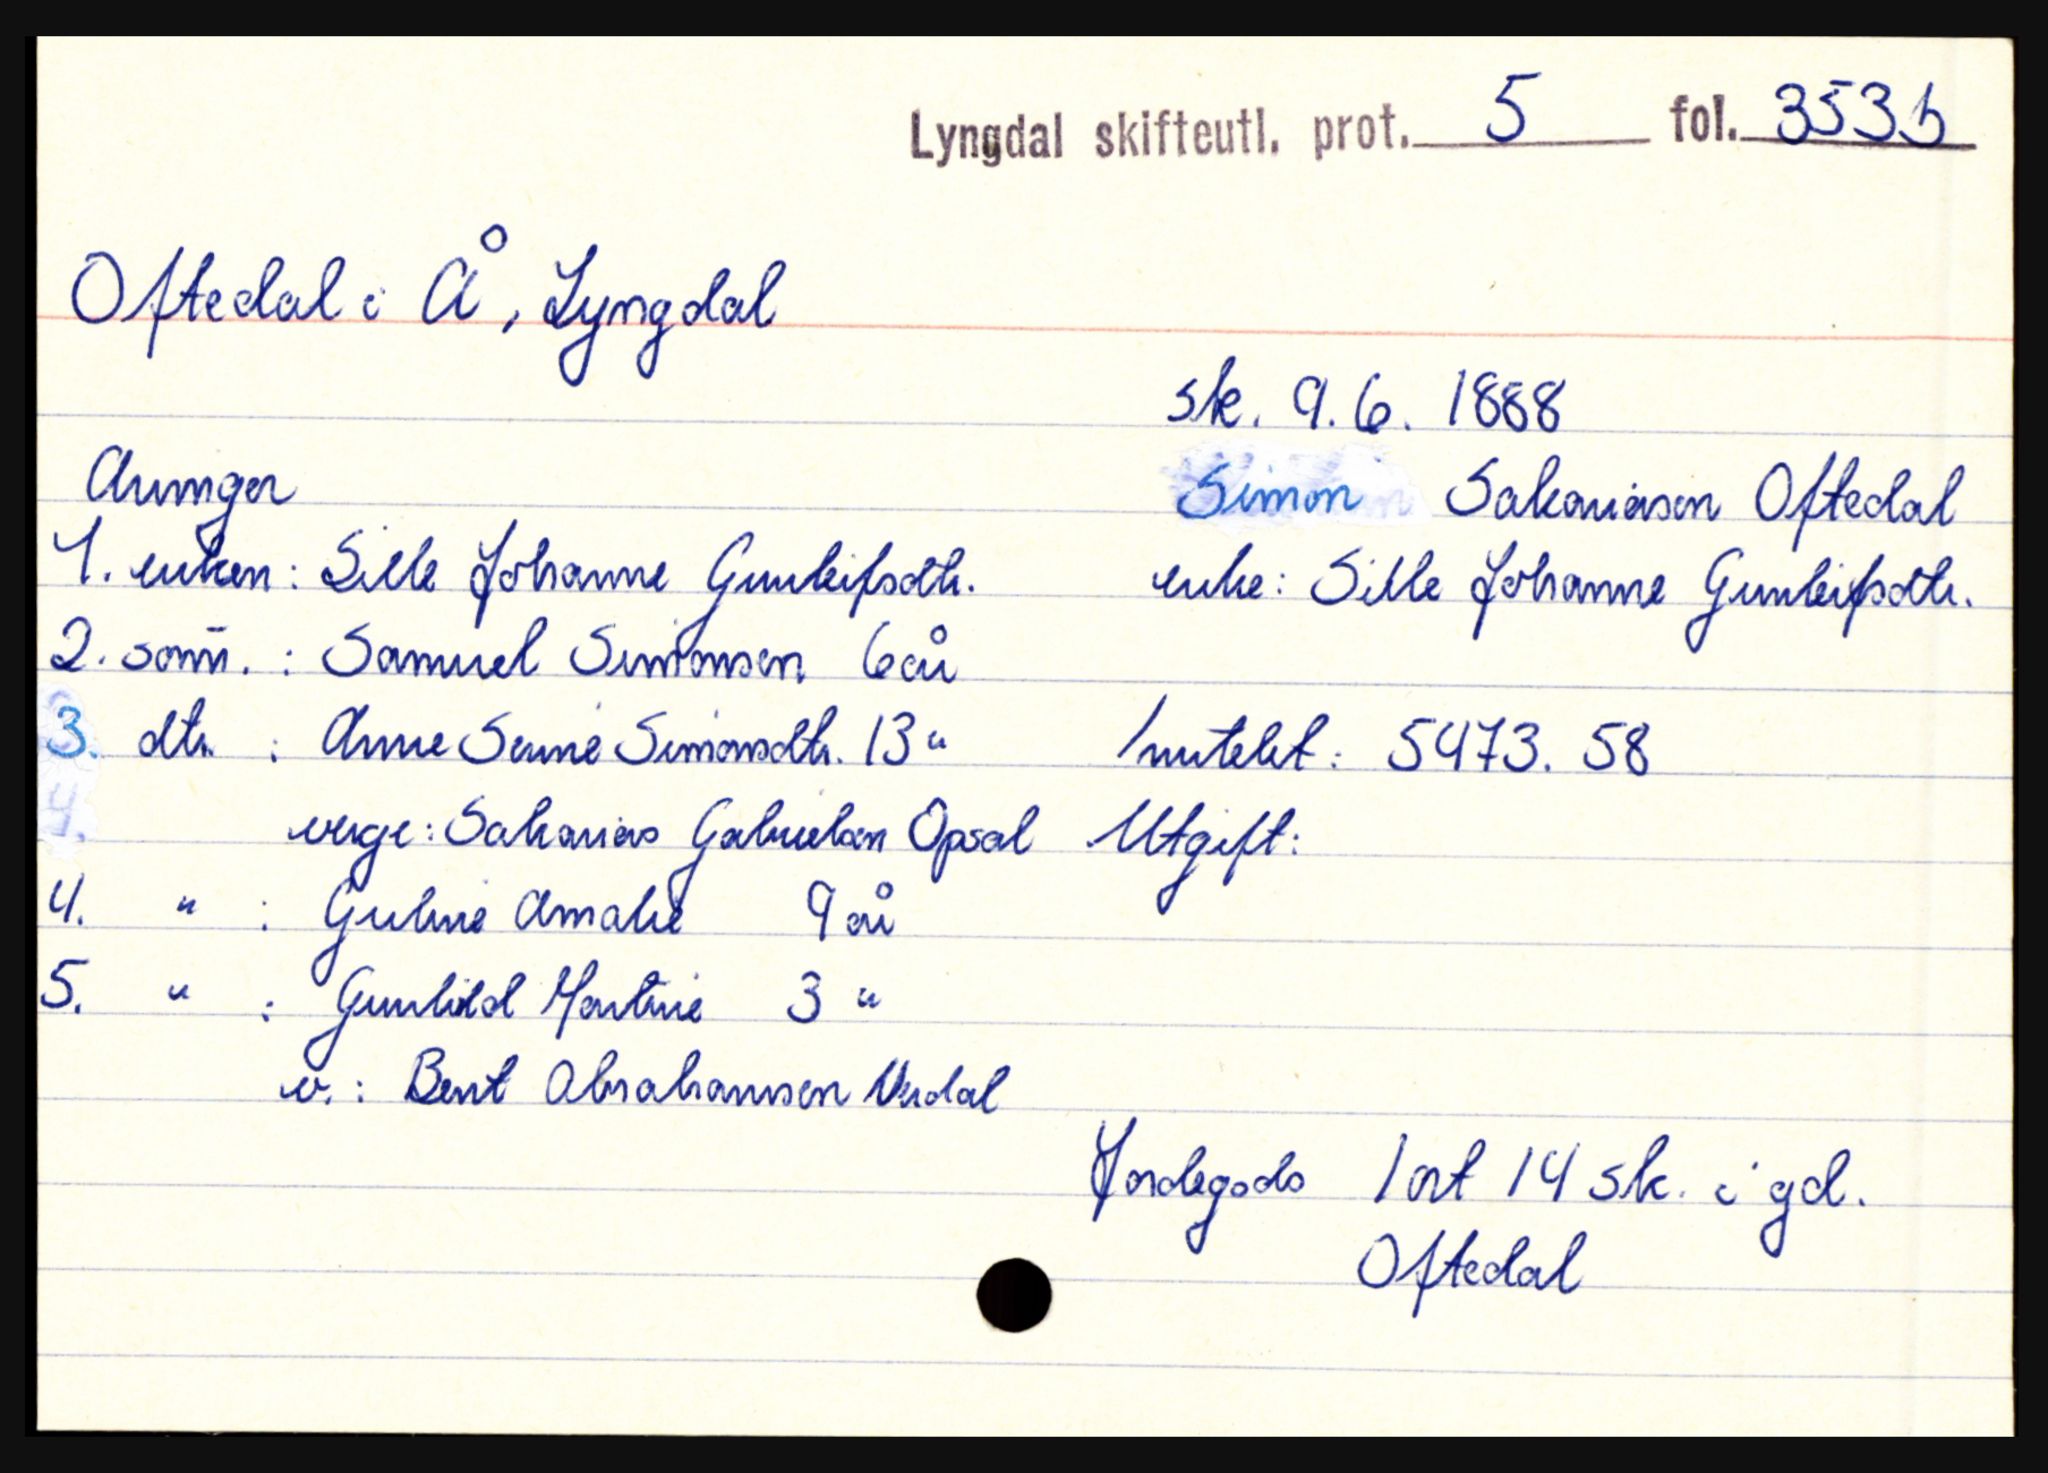 Lyngdal skifteutl. prot. 5 fol. 353b
Oftedal i Å, Lyngdal
sk. 9.6. 1888
Simon Sakariasen Oftedal
enke: Sille Johanne Gunleifsdtr.
Arvinger
1. enken: Sille Johanne Gunleifsdtr.
2. sønn. : Samuel Simonsen 6 år
3. dtr. : Anne Serine Simonsdtr. 13 "
4.
verge: Sakarias Gabrielsen Opsal
4. " : Guline Amalie 9 år
5. " : Gunhild Martine 3 "
v.: Bent Abrahamsen Verdal
Inntekt: 5473. 58
Utgift:
Jordegods 1 ort 14 sk. i gd.
Oftedal